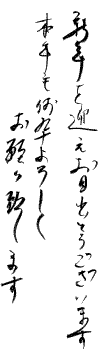 新年を迎えお目出とうございます
本年も何卒よろしく
お願い致します